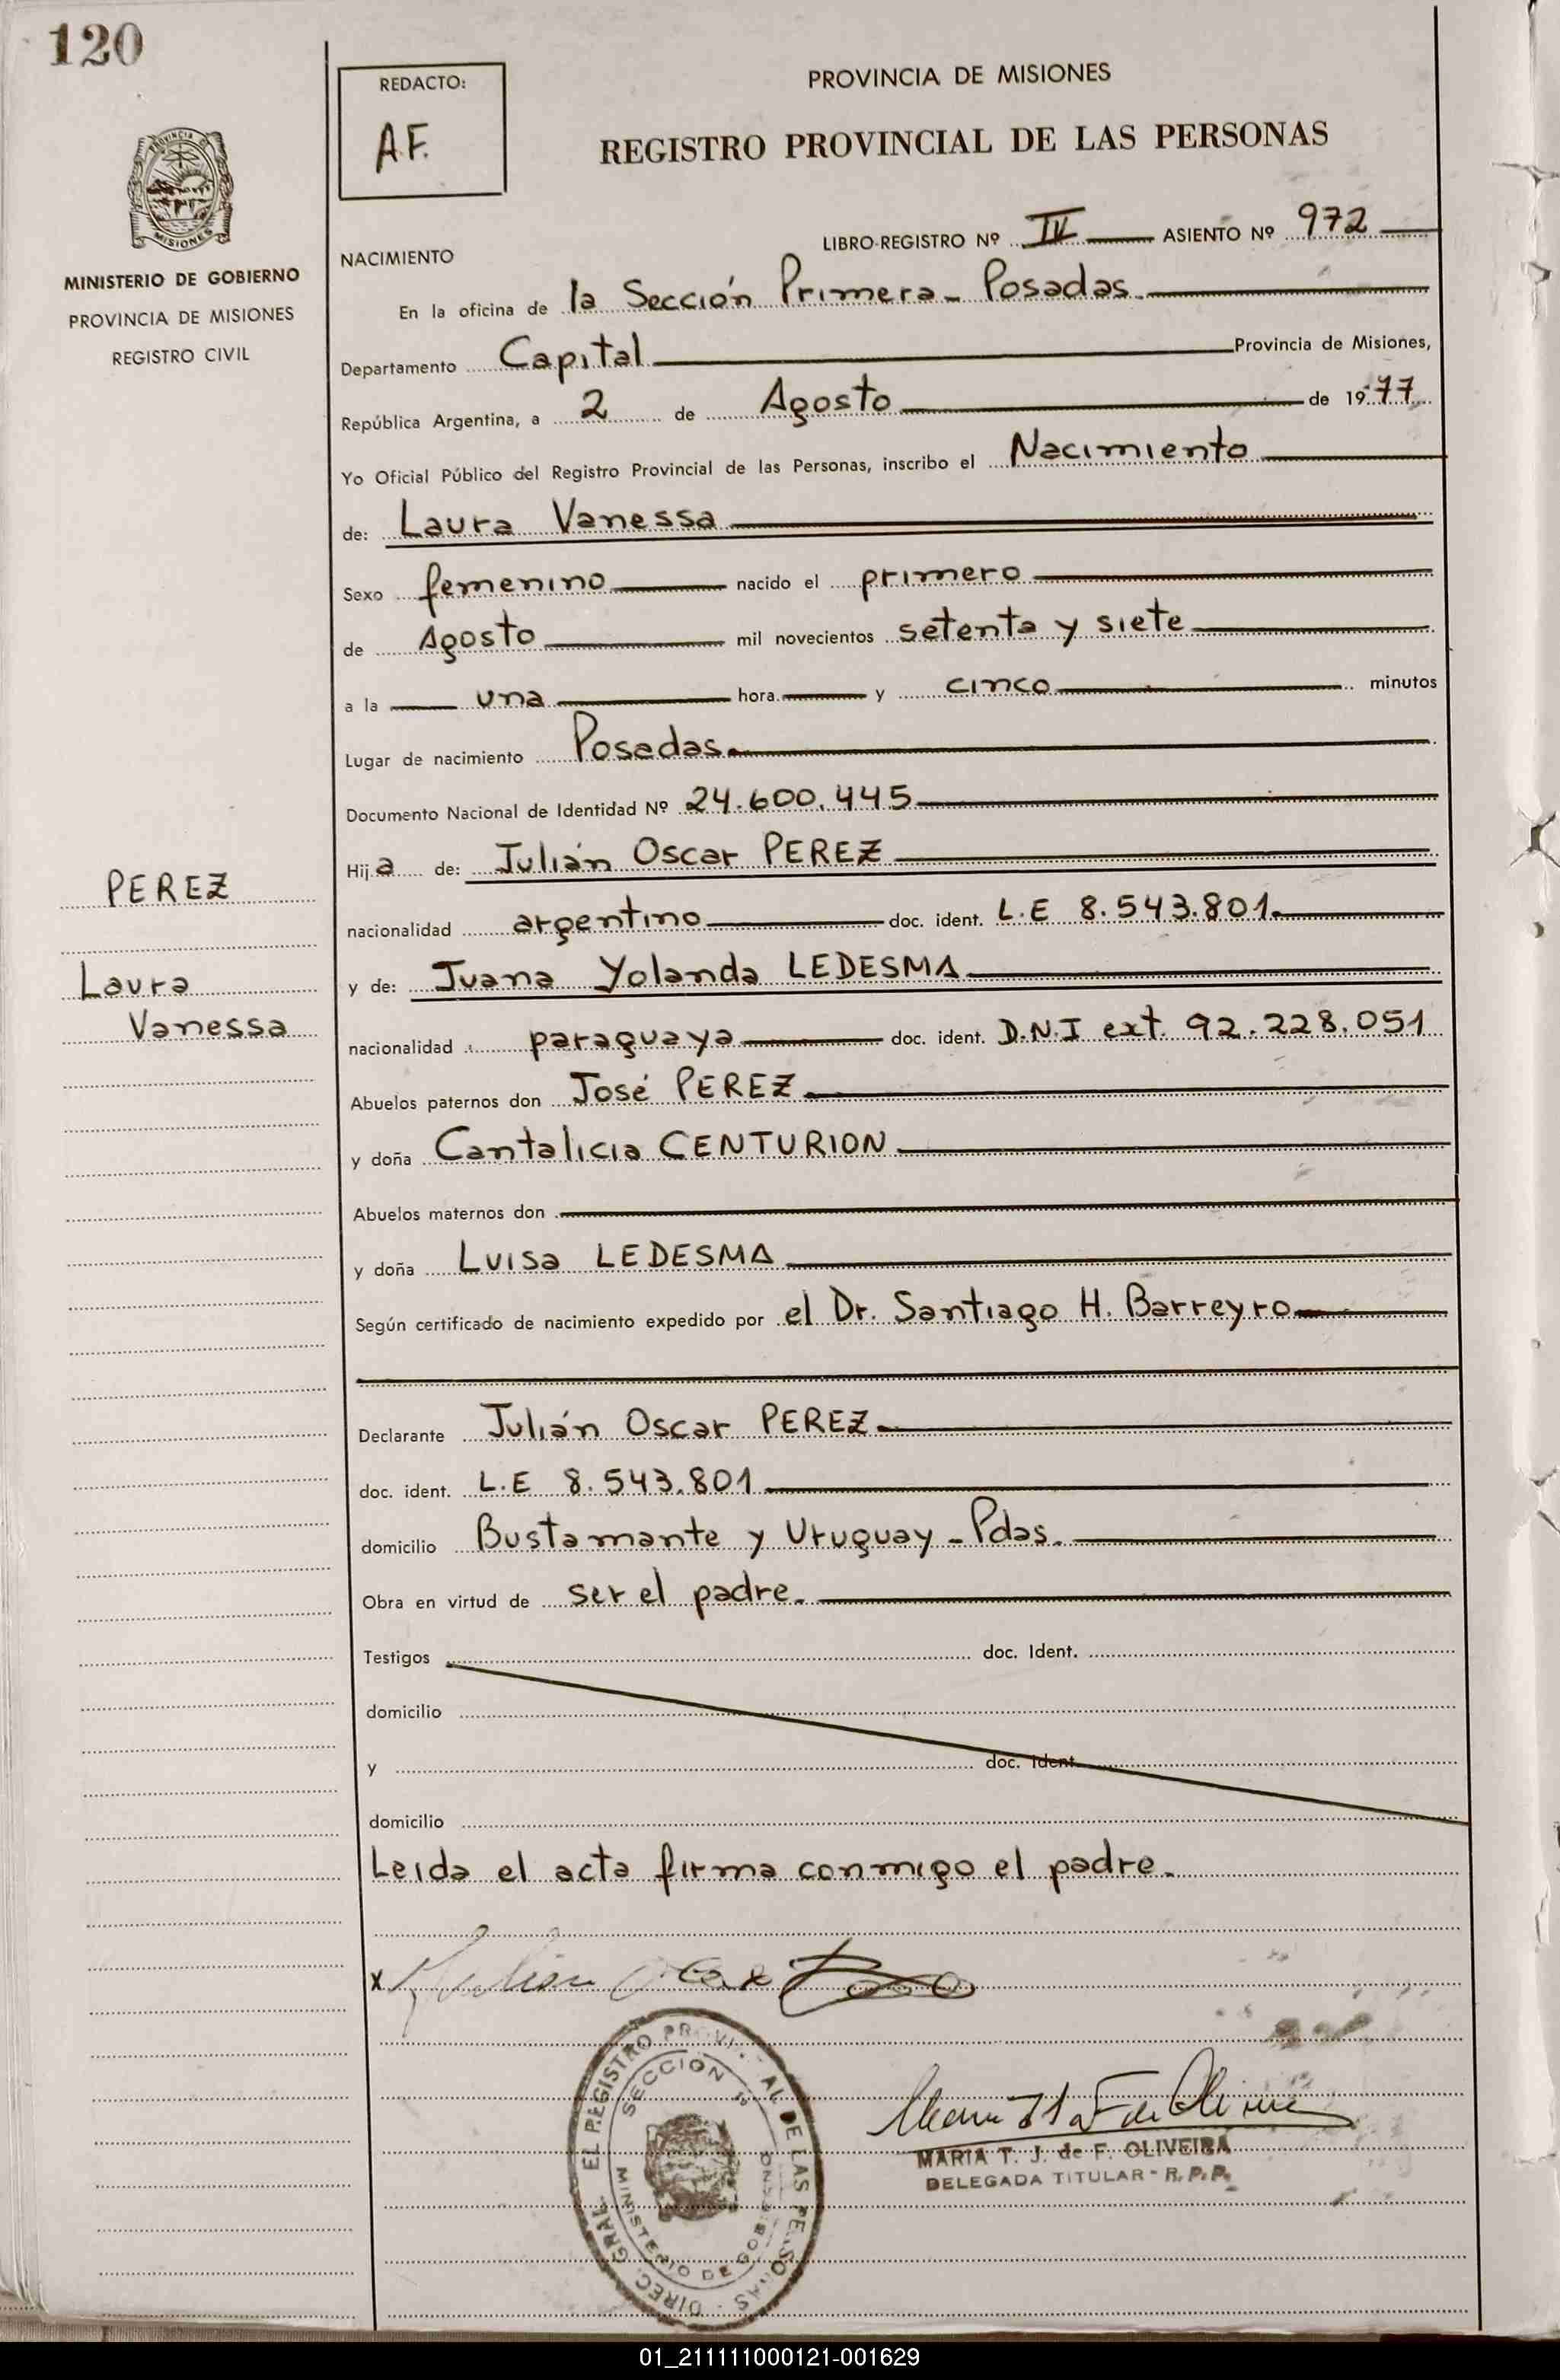 120
REDACTO:
A.F.
PROVINCIA DE MISIONES
REGISTRO PROVINCIAL DE LAS PERSONAS
PROVINCIA
MISIONES
MINISTERIO DE GOBIERNO
PROVINCIA DE MISIONES
REGISTRO CIVIL
LIBRO-REGISTRO Nº IV ASIENTO Nº 972
NACIMIENTO
En la oficina de la Sección Primera - Posadas.
Departamento Capital Provincia de Misiones,
República Argentina, a 2 de Agosto de 1977
Yo Oficial Público del Registro Provincial de las Personas, inscribo el Nacimiento
de: Laura Vanessa
Sexo femenino nacido el primero
de Agosto mil novecientos setenta y siete
a la una hora y cinco minutos
Lugar de nacimiento Posadas.
Documento Nacional de Identidad Nº 24.600.445
Hija de: Julián Oscar PEREZ
nacionalidad argentino doc. ident. L.E 8.543.801.
y de: Juana Yolanda LEDESMA
nacionalidad paraguaya doc. ident. D.N.I ext. 92.228.051
Abuelos paternos don José PEREZ
y doña Cantalicia CENTURION
Abuelos maternos don
y doña Luisa LEDESMA
Según certificado de nacimiento expedido por el Dr. Santiago H. Barreyro
Declarante Julián Oscar PEREZ
doc. ident. L.E 8.543.801
domicilio Bustamante y Uruguay - Pdas.
Obra en virtud de ser el padre.
Testigos doc. Ident.
domicilio
y doc. ident.
domicilio
Leida el acta firma conmigo el padre.
PEREZ
Laura
Vanessa
x Julian Oscar
DIREC. GRAL. EL REGISTRO DE LAS
SECCION 1º
MINISTERIO DE GOBIERNO
MARIA T. J. de F. OLIVEIRA
DELEGADA TITULAR - R. P. P.
01_211111000121-001629